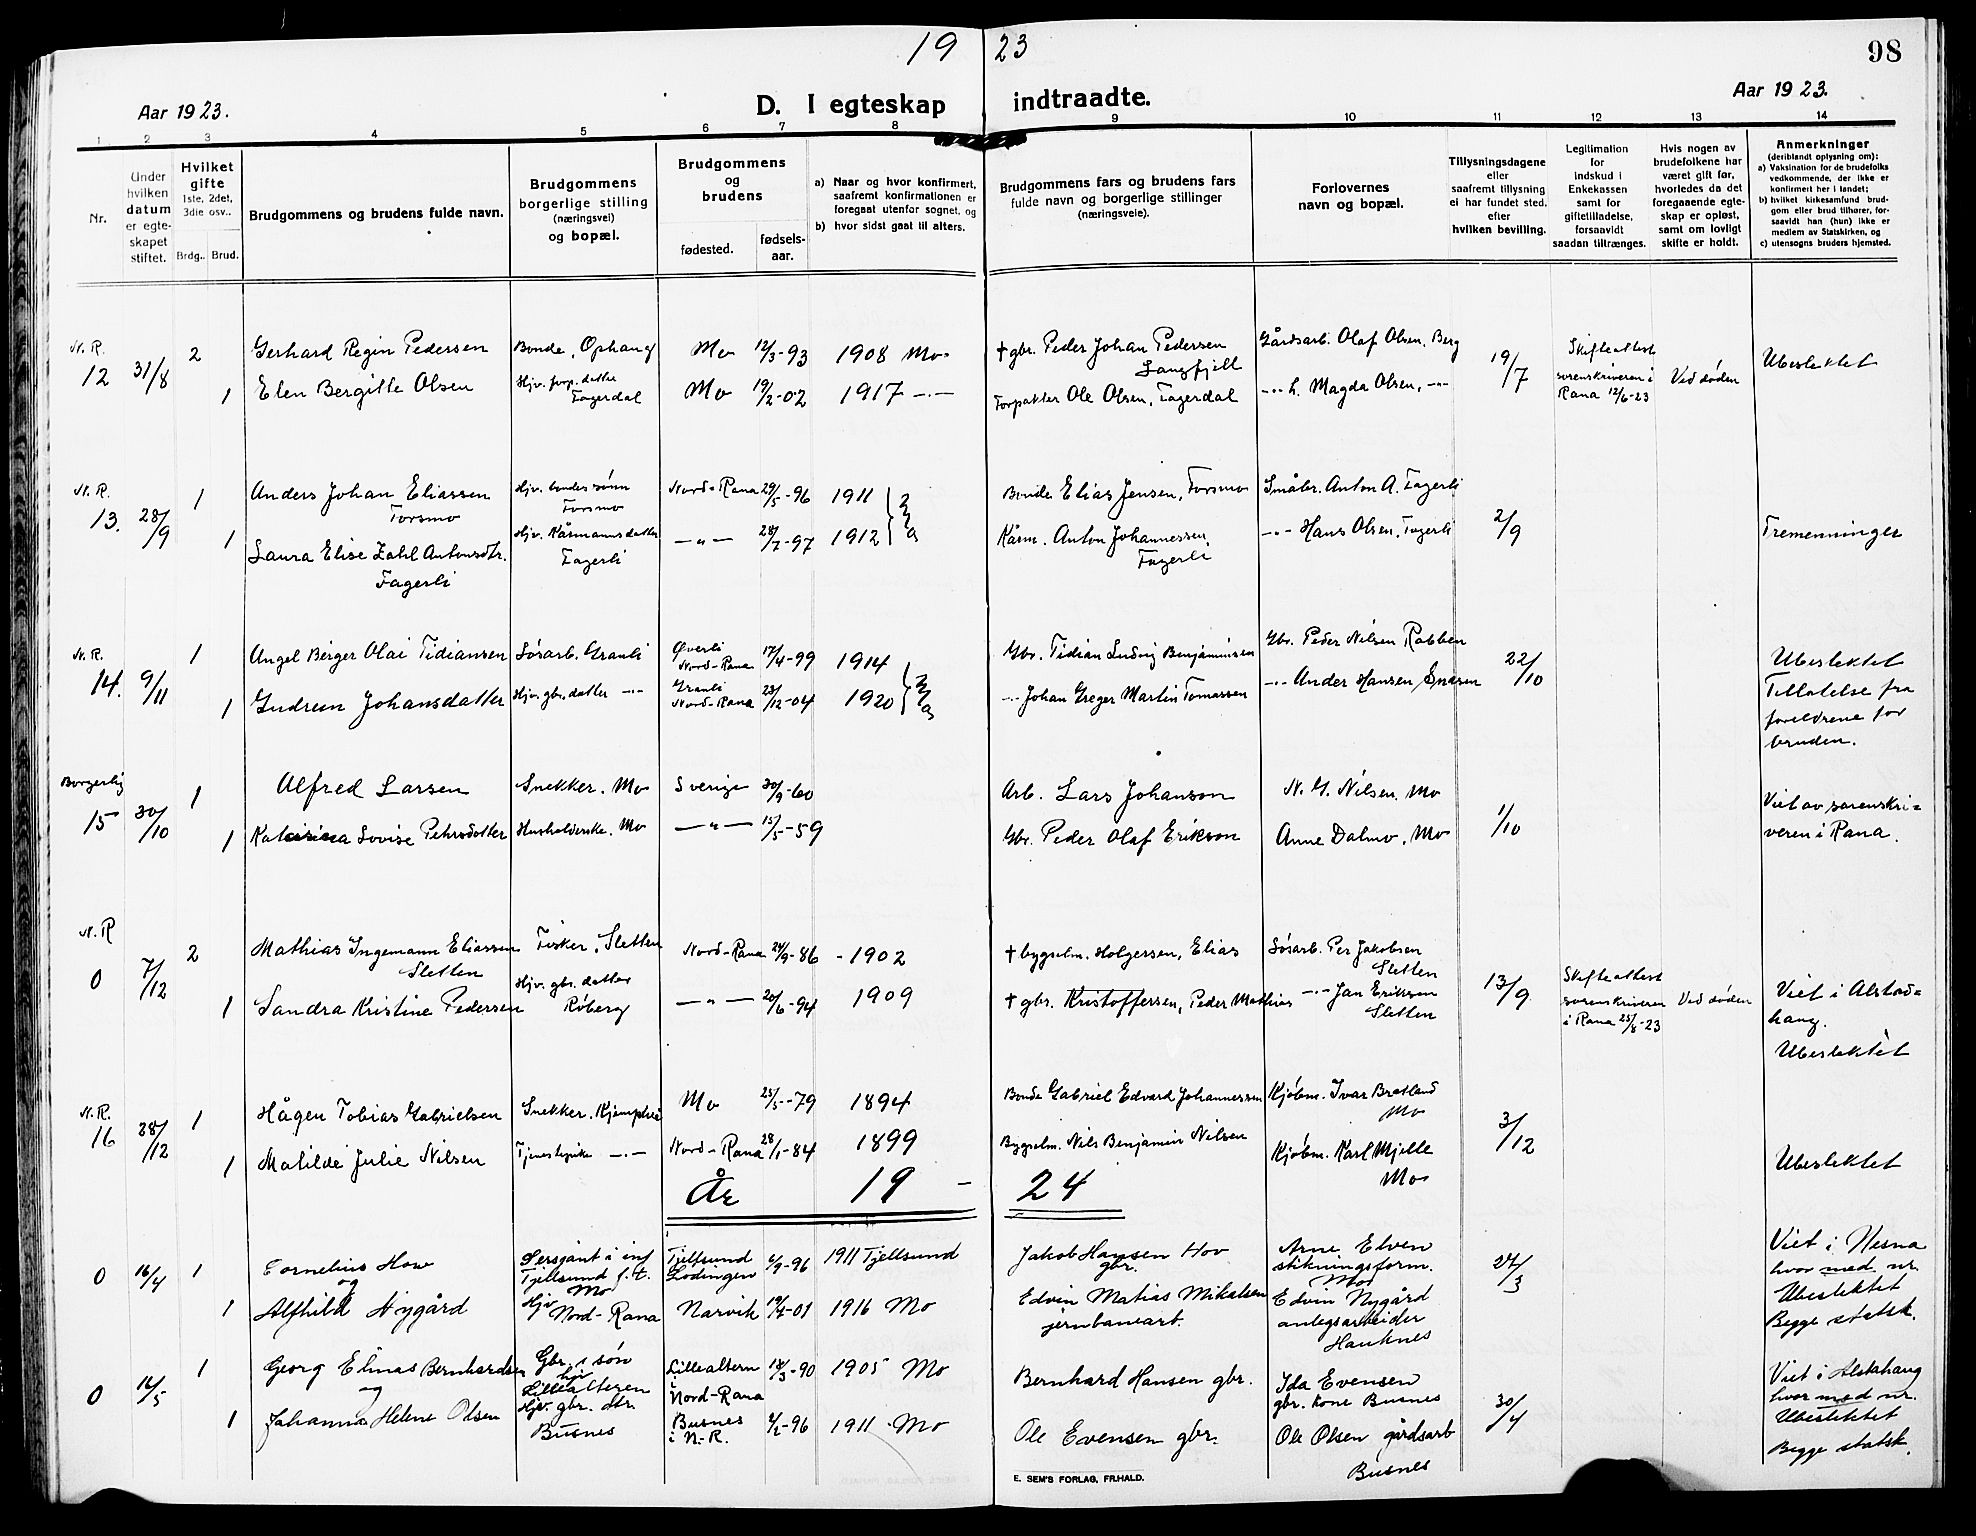 19 23
98
Aar 1923.
D. I egteskap indtraadte.
Aar 1923.
1 2 3 4 5 6 7 8 9 10 11 12 13 14
Nr.
Under
hvilken
datum
er egte-
skapet
stiftet.
Hvilket
gifte
1ste, 2det,
3die osv..
Brdg.. Brud.
Brudgommens og brudens fulde navn.
Brudgommens
borgerlige stilling
(næringsvei)
og bopæl.
Brudgommens
og
brudens
fødested.
fødsels-
aar.
a) Naar og hvor konfirmert,
saafremt konfirmationen er
foregaat utenfor sognet, og
b) hvor sidst gaat til alters.
Brudgommens fars og brudens fars
fulde navn og borgerlige stillinger
(næringsveie).
Forlovernes
navn og bopæl.
Tillysningsdagene
eller
saafremt tillysning
ei har fundet sted.
efter
hvilken bevilling.
Legitimation
for
indskud i
Enkekassen
samt for
giftetilladelse,
forsaavidt
saadan tiltrænges.
Hvis nogen av
brudefolkene har
været gift før,
hvorledes da det
foregaaende egte-
skap er opløst,
samt om lovligt
skifte er holdt.
Anmerkninger
(deriblandt oplysning om):
a) Vaksination for de brudefolks
vedkommende, der ikke er
konfirmert her i landet;
b) hvilket kirkesamfund brud-
gom eller brud tilhører, for-
saavidt han (hun) ikke er
medlem av Statskirken, og
c) utensogns bruders hjemsted.
N. R.
12 31/8 2 Gerhard Regin Pedersen Bonde, Ophaug Mo 12/3-93 1908 Mo
† gbr. Peder Johan Pedersen
Langfjell
Gårdsarb. Olaf Olsen, Berg
1 Elen Bergitte Olsen Hjv. forp. datter
Fagerdal Mo 19/2-02 1917 -"-
Forpakter Ole Olsen, Fagerdal
-"- h. Magda Olsen, -"-
19/7
Skifteattest
sorenskriveren i
Rana 12/6-23
Ved døden
Ubeslektet
N. R.
13. 28/9 1 Anders Johan Eliassen
Forsmo
Hjv. bondes sønn
Forsmo
Nord-Rana 29/5-96 1911 Mo
Bonde Elias Jensen, Forsmo
Småbr. Anton A. Fagerli
1 Laura Elise Zahl Antonsdtr.
Fagerli
Hjv. Kårmannsdatter
Fagerli
-"- 28/7-97 1912
Kårm. Anton Johannessen,
Fagerli
-"- Hans Olsen, Fagerli
2/9
Tremenninger
N. R.
14. 9/11 1 Angel Berger Olai Tidiansen Løsarb. Granli
Øverli
Nord-Rana 17/4-99 1914 Mo
Gbr. Tidian Ludvig Benjaminsen
Gbr. Peder Nilsen Rabben
1 Gudrun Johansdatter Hjv. gbr. datter -"-
Granli
Nord-Rana 23/12-04 1920
-"- Johan Greger Martin Tomassen
-"- Ander Hansen
22/10
Ubeslektet
Tillatelse fra
foreldrene for
bruden.
Borgerlig
15 30/10 1 Alfred Larsen Snekker. Mo Sverige 30/9-60
Arb. Lars Johanson
N. G. Nilsen. Mo
1 Lovise Pehrsdotter Husholderske. Mo -"- 15/5-59
Gbr. Peder Olaf Erikson
Anne Dalmo, Mo
1/10
Viet av sorenskri=
veren i Rana.
N. R
0 7/12 2 Mathias Ingemann Eliassen
Sletten
Fisker, Sletten
Nord-Rana 24/9-86 - 1902
† bygselm. Holgersen, Elias
Løsarb. Per Jakobsen
Sletten
1 Sandra Kristine Pedersen
Hjv. gbr. datter
Røberg
-"- 20/6-94 1909
† gbr. Kristoffersen, Peder Mathias
-"- Jan Eriksen
Sletten
13/9
Skifteattest
sorenskriveren
i Rana 25/8-23
Ved døden
Viet i Alstad=
haug.
Ubeslektet
N. R.
16 28/12 1 Hågen Tobias Gabrielsen Snekker.
Mo 25/5-79 1894
Bonde Gabriel Edvard Johannessen
Kjøbm. Ivar Bratland
Mo
1 Matilde Julie Nilsen Tjenestepike -"-
Nord-Rana 28/1-84 1899
Bygselm. Nils Benjamin Nilsen
Kjøbm. Karl Mjelle
Mo
3/12
Ubeslektet
År 19 - 24
0 16/4 1 Cornelius Hov
og
Sersjant i inf
Tjellsund f.t.
Mo
Tjellsund
Lødingen 6/9-96 1911 Tjellsund
Jakob Hansen Hov
gbr.
Arne Elven
stikningsform.
Mo
1 Alfhild Nygård
Hjv
Nord-Rana
Narvik 19/4-01 1916 Mo
Edvin Matias Mikalsen
jernbanearb.
Edvin Nygård
anlegsarbeider
Hauknes
24/3
Viet i Nesna
hvor med nr.
Ubeslektet
Begge statsk.
0 16/5 1 Georg Elinas Bernhardsen
og
Gbr. søn
hjv
Lillealteren
Lillealtern
i
Nord-Rana 18/3-90 1905 Mo
Bernhard Hansen gbr.
Ida Evensen
gbr. kone Busnes
1 Johanna Helene Olsen
Hjv. gbr. dtr.
Busnes
Busnes
i N.-R. 2/2-96 1911 - Mo
Ole Evensen gbr.
Ole Olsen gårdsarb
Busnes
30/4
Viet i Alstahaug
hvor med nr.
Ubeslektet
Begge statsk.
E. SEM'S FORLAG, FR.HALD.